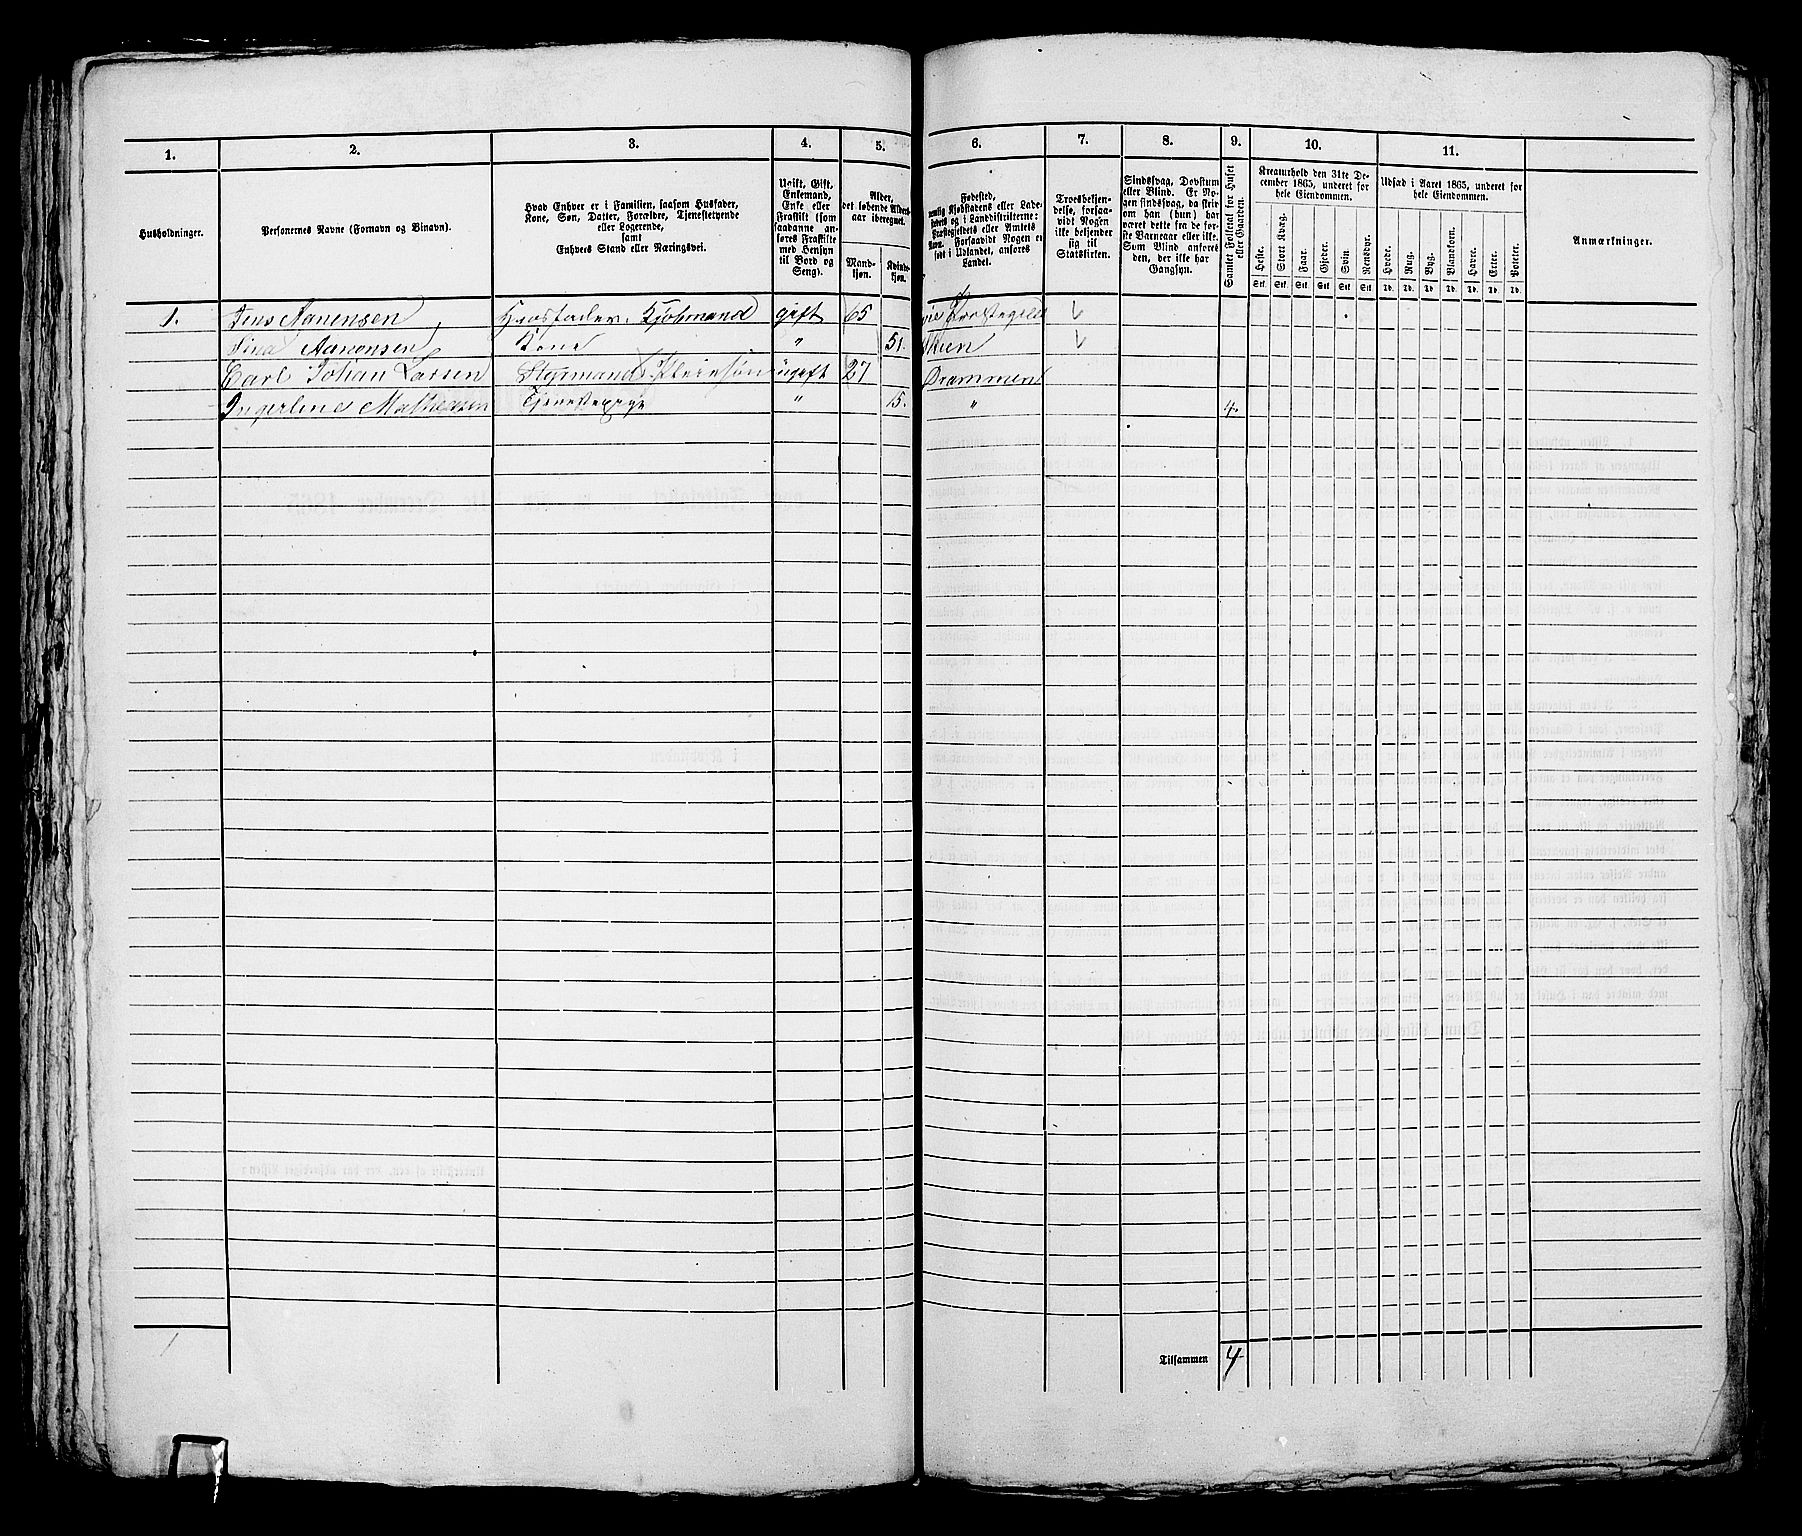 1. 2. 3. 4. 5. 6. 7. 8. 9. 10. 11.
Husholdninger.
Personernes Navne (Fornavn og Binavn).
Hvad Enhver er i Familien, saasom Husfader,
Kone, Søn, Datter, Forældre, Tjenestetyende
eller Logerende,
samt
Enhvers Stand eller Næringsvei.
Ugift, Gift,
Enkemand,
Enke eller
Fraskilt (som
saadanne an-
føres Fraskilte
med Hensyn
til Bord og
Seng).
Alder,
det løbende Alders-
aar iberegnet.
Mand-
kjøn.
Kvinde-
kjøn.
Fødested,
nemlig Kjøbstadens eller Lade-
stedets og i Landdistrikterne:
Præstegjeldets eller Amtets
Navn. Forsaavidt Nogen er
født i Udlandet, anføres
Landet.
Troesbekjen-
delse, forsaa-
vidt Nogen
ikke bekjender
sig til
Statskirken.
Sindssvag, Døvstum
eller Blind. Er No-
gen sindssvag, da skriv
om han (hun) har
været dette fra de før-
ste Barneaar eller ikke.
Som Blind anføres
den, der ikke har
Gangsyn.
Samlet Folketal for Huset
eller Gaarden.
Kreaturhold den 31te De-
cember 1865, underet for
hele Eiendommen.
Heste. Stort Kvæg. Faar. Gjeder. Svin Rensdyr.
Stk. Stk. Stk. Stk. Stk. Stk.
Udsæd i Aaret 1865, underet for
hele Eiendommen.
Hvede. Rug. Byg. Blandkorn. Havre. Erter. Poteter.
Td. Td. Td. Td. Td. Td. Td.
Anmærkninger.
1. Jens Aanensen Huusfader, Kjøbmand gift 65 Præstegjeld
Aanensen Kone " 51. Skien
Carl Johan Larsen Styrmand ugift 27 Drammen
Ingerline Mathesen Tjenestepige " 15. " 4.
1
Tilsammen 4